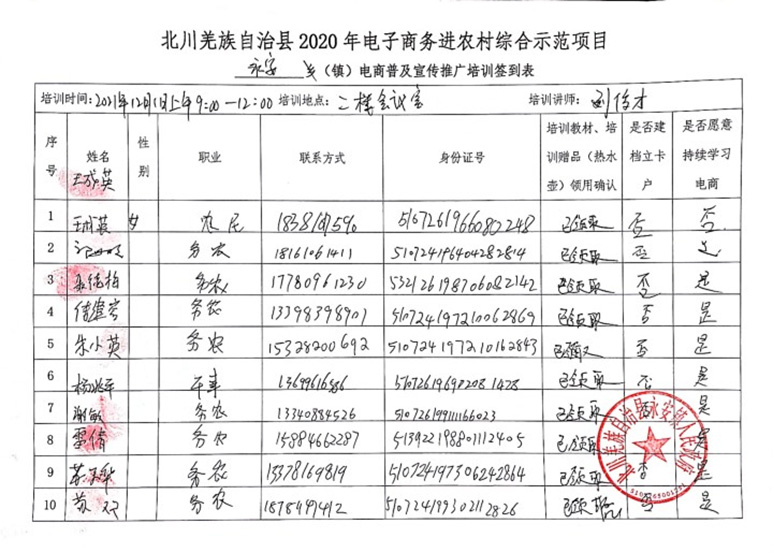 北川羌族自治县2020年电子商务进农村综合示范项目
永安 乡（镇）电商普及宣传推广培训签到表
培训时间：2021年12月1日上午9:00—12:00 培训地点：二楼会议室 培训讲师：
序号 姓名 性别 职业 联系方式 身份证号 培训教材、培训赠品（热水壶）领用确认 是否建档立卡户 是否愿意持续学习电商
王成英
1 王成英 女 农民 已领取 否 否
2 务农 18161061411 510724196404282814 已领取 否 是
3 务农 17780961230 532126198706082142 已领取 否 是
4 务农 13398398901 510724197210062869 已领取 否 是
5 朱小英 务农 15328200692 510724197210162843 已领取 否 是
6 510726196902081428 已领取 否 是
7 谢敏 务农 13340884526 已领取 是
8 务农 15884662287 513922198801112405 已领取 是
9 务农 15378169819 510724197306242864 已领取 否 是
10 苏 务农 18784997412 510724199302112826 已领取 否 是
北川羌族自治县永安镇人民政府